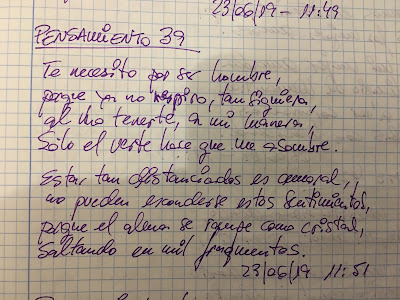 23/06/19 - 11:49
PENSAMIENTO 39
Te necesito por ser hombre,
porque ya no respiro, tan siquiera,
al no tenerte, a mi manera,
Sólo el verte hace que me asombre.
Estar tan distanciados es amoral,
no pueden esconderse estos sentimientos,
porque el alma se rompe como cristal,
Saltando en mil fragmentos.
23/06/19 11:51